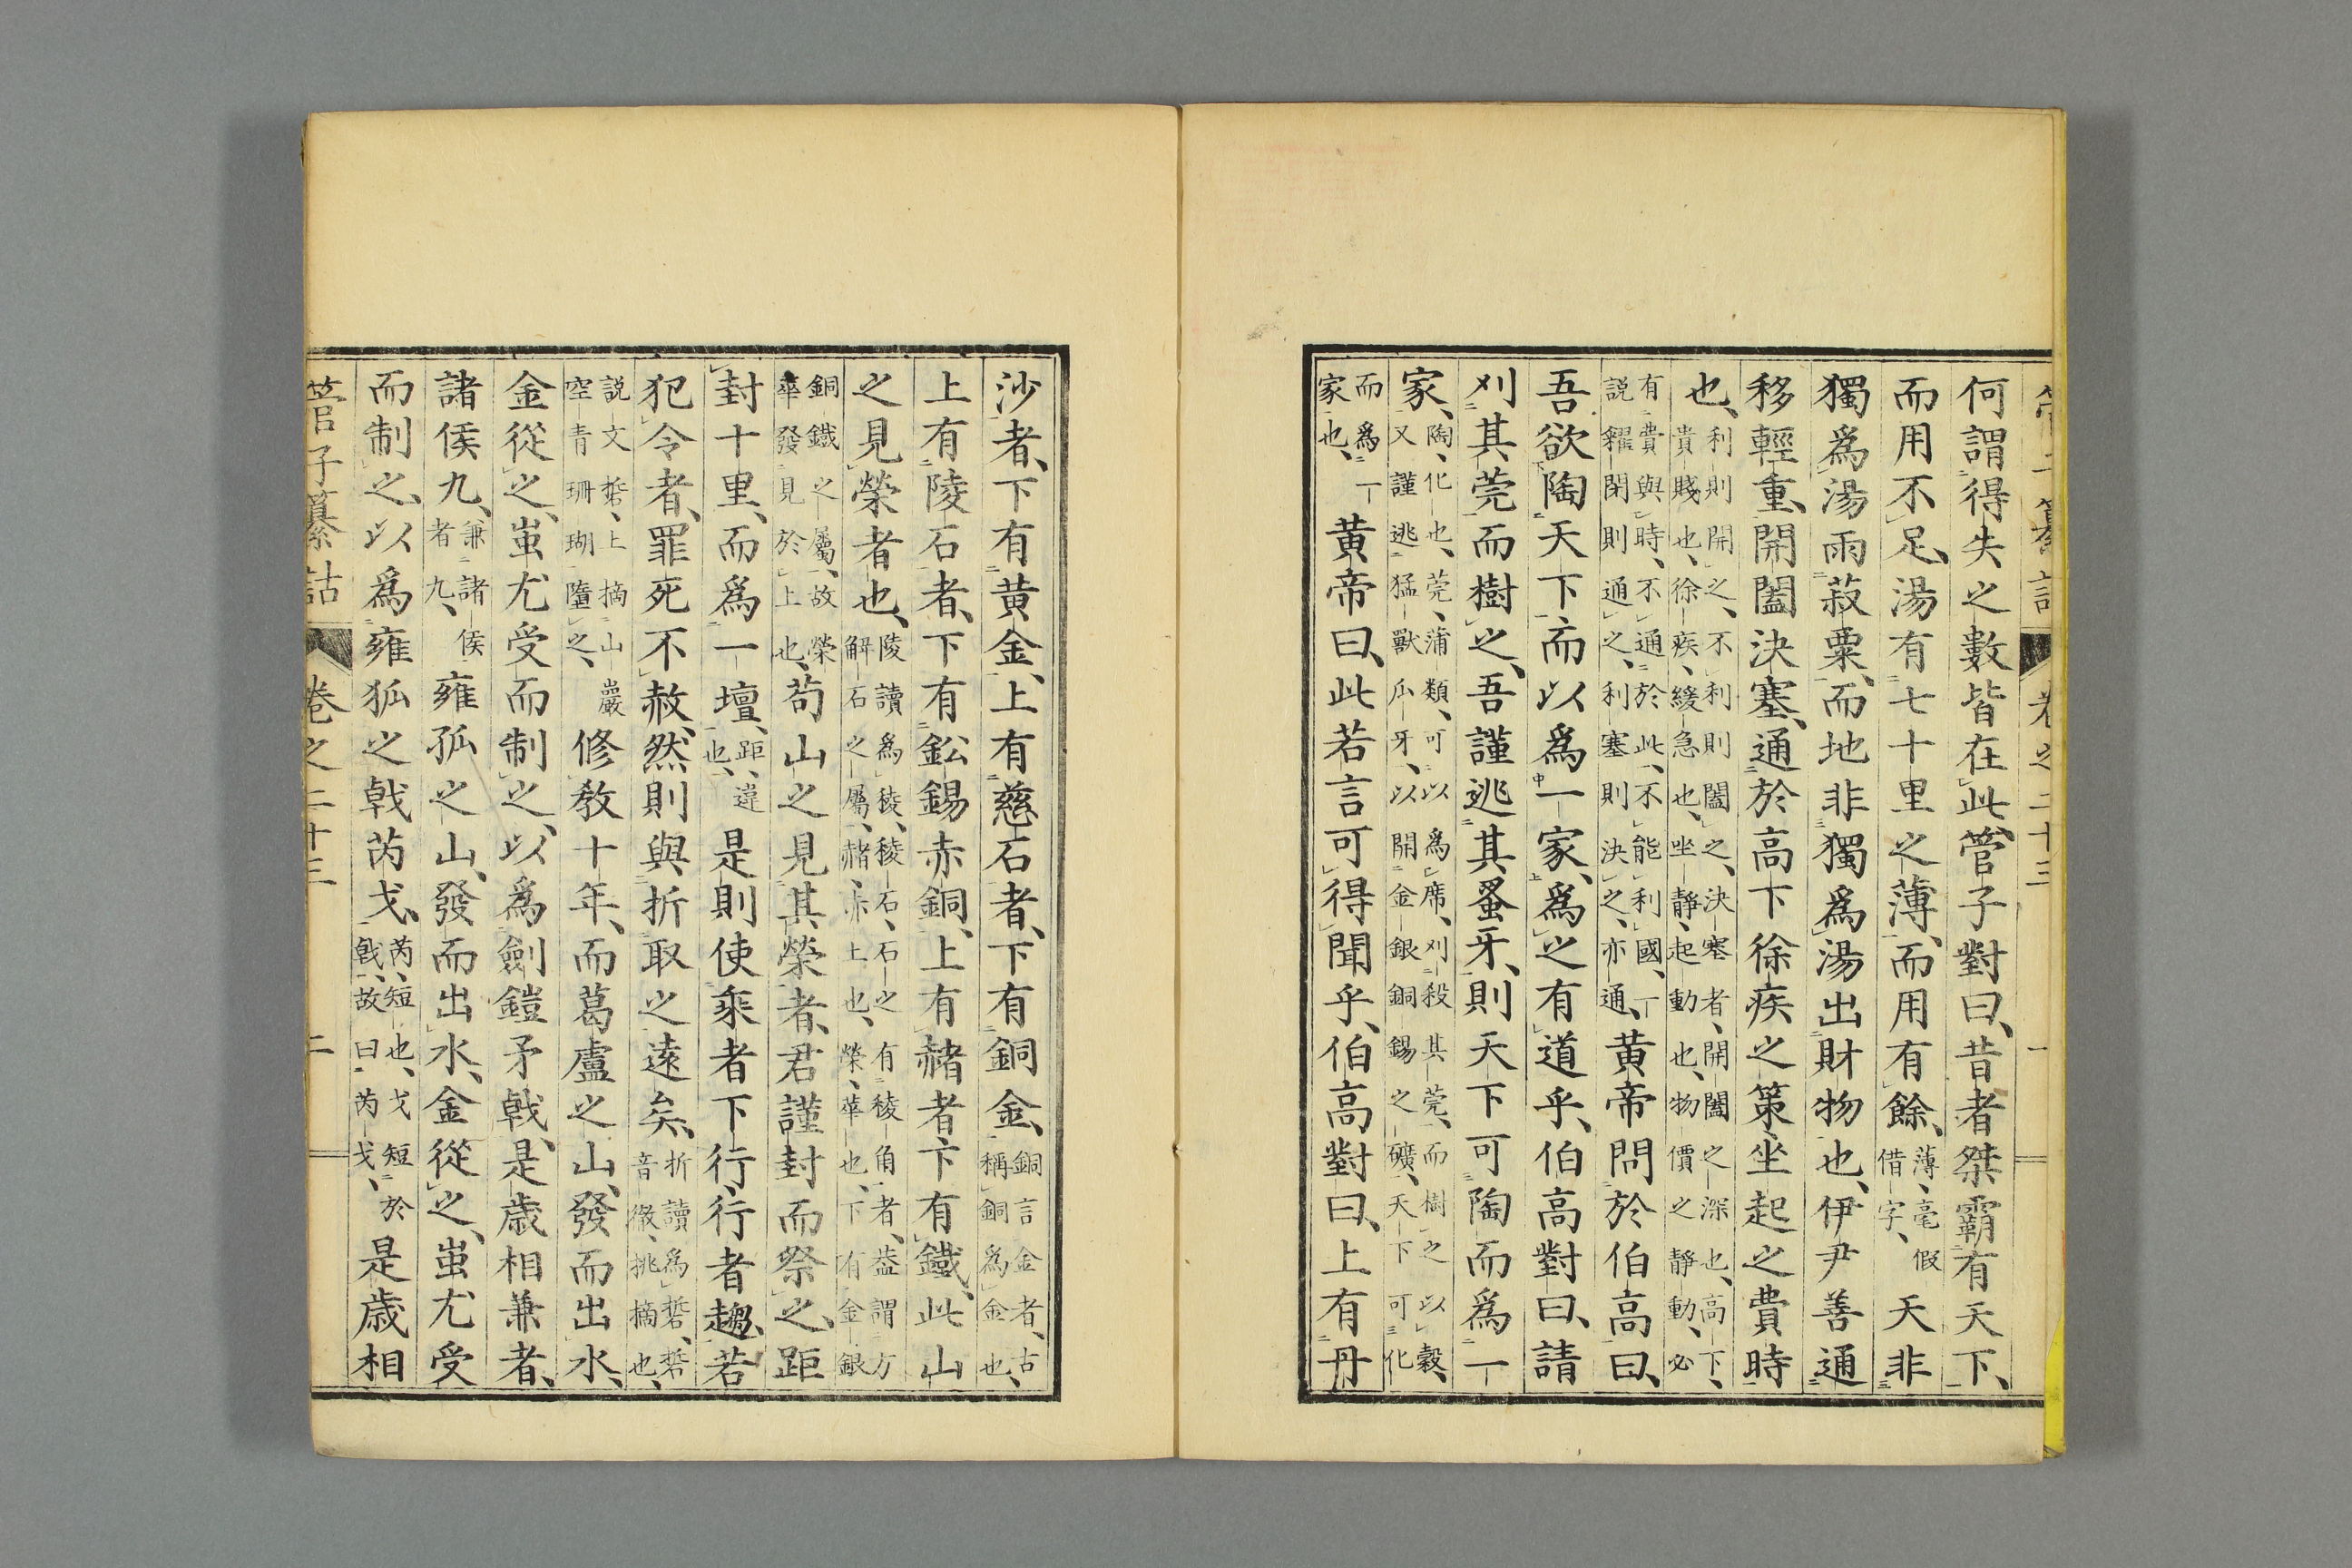 何謂得失之數皆在此、管子對曰、昔者桀霸有天下、
而用不足、湯有七十里之薄、而用有餘、薄、亳假借字、天非
獨爲湯雨菽粟、而地非獨爲湯出財物也、伊尹善通
移輕重、開闔決塞、通於高下徐疾之策、坐起之費時
也、利則開之、不利則闔之、決塞者、開闔之深也、高下、貴賤也、徐疾、緩急也、坐靜、起動也、物價之靜動、必
有費與時、不通於此、不能利國、一説糴閉則通之、利塞則決之、亦通、黄帝問於伯高曰、
吾欲陶天下、而以爲一家、爲之有道乎、伯高對曰、請
刈其莞而樹之、吾謹逃其蚤牙、則天下可陶而爲一
家、陶、化也、莞、蒲類、可以爲席、刈殺其莞、而樹之以穀、又謹逃猛獸爪牙、以開金銀銅錫之礦、天下可化
而爲一家也、黄帝曰、此若言可得聞乎、伯高對曰、上有丹
沙者、下有黄金、上有慈石者、下有銅金、銅言金者、古稱銅爲金也、
上有陵石者、下有鈆錫赤銅、上有赭者卞有鐵、此山
之見榮者也、陵讀爲稜、稜石、石之有稜角者、葢謂方解石之屬、赭、赤土也、榮、華也、下有金銀
銅鐵之屬、故榮華發見於上也、苟山之見其榮者、君謹封而祭之、距
封十里、而爲一壇、距、違也、是則使乘者下行、行者趨、若
犯令者、罪死不赦、然則與折取之遠矣、折讀爲硩、硩音徹、挑摘也、
説文硩、上摘山巖空青珊瑚墮之、修教十年、而葛盧之山、發而出水、
金從之、蚩尤受而制之、以爲劍鎧矛戟、是歲相兼者、
諸侯九、兼諸侯者九、雍狐之山、發而出水、金從之、蚩尤受
而制之、以爲雍狐之戟芮戈、芮、短也、戈短於戟、故曰芮戈、是歲相
管子纂詁 卷之二十三 二